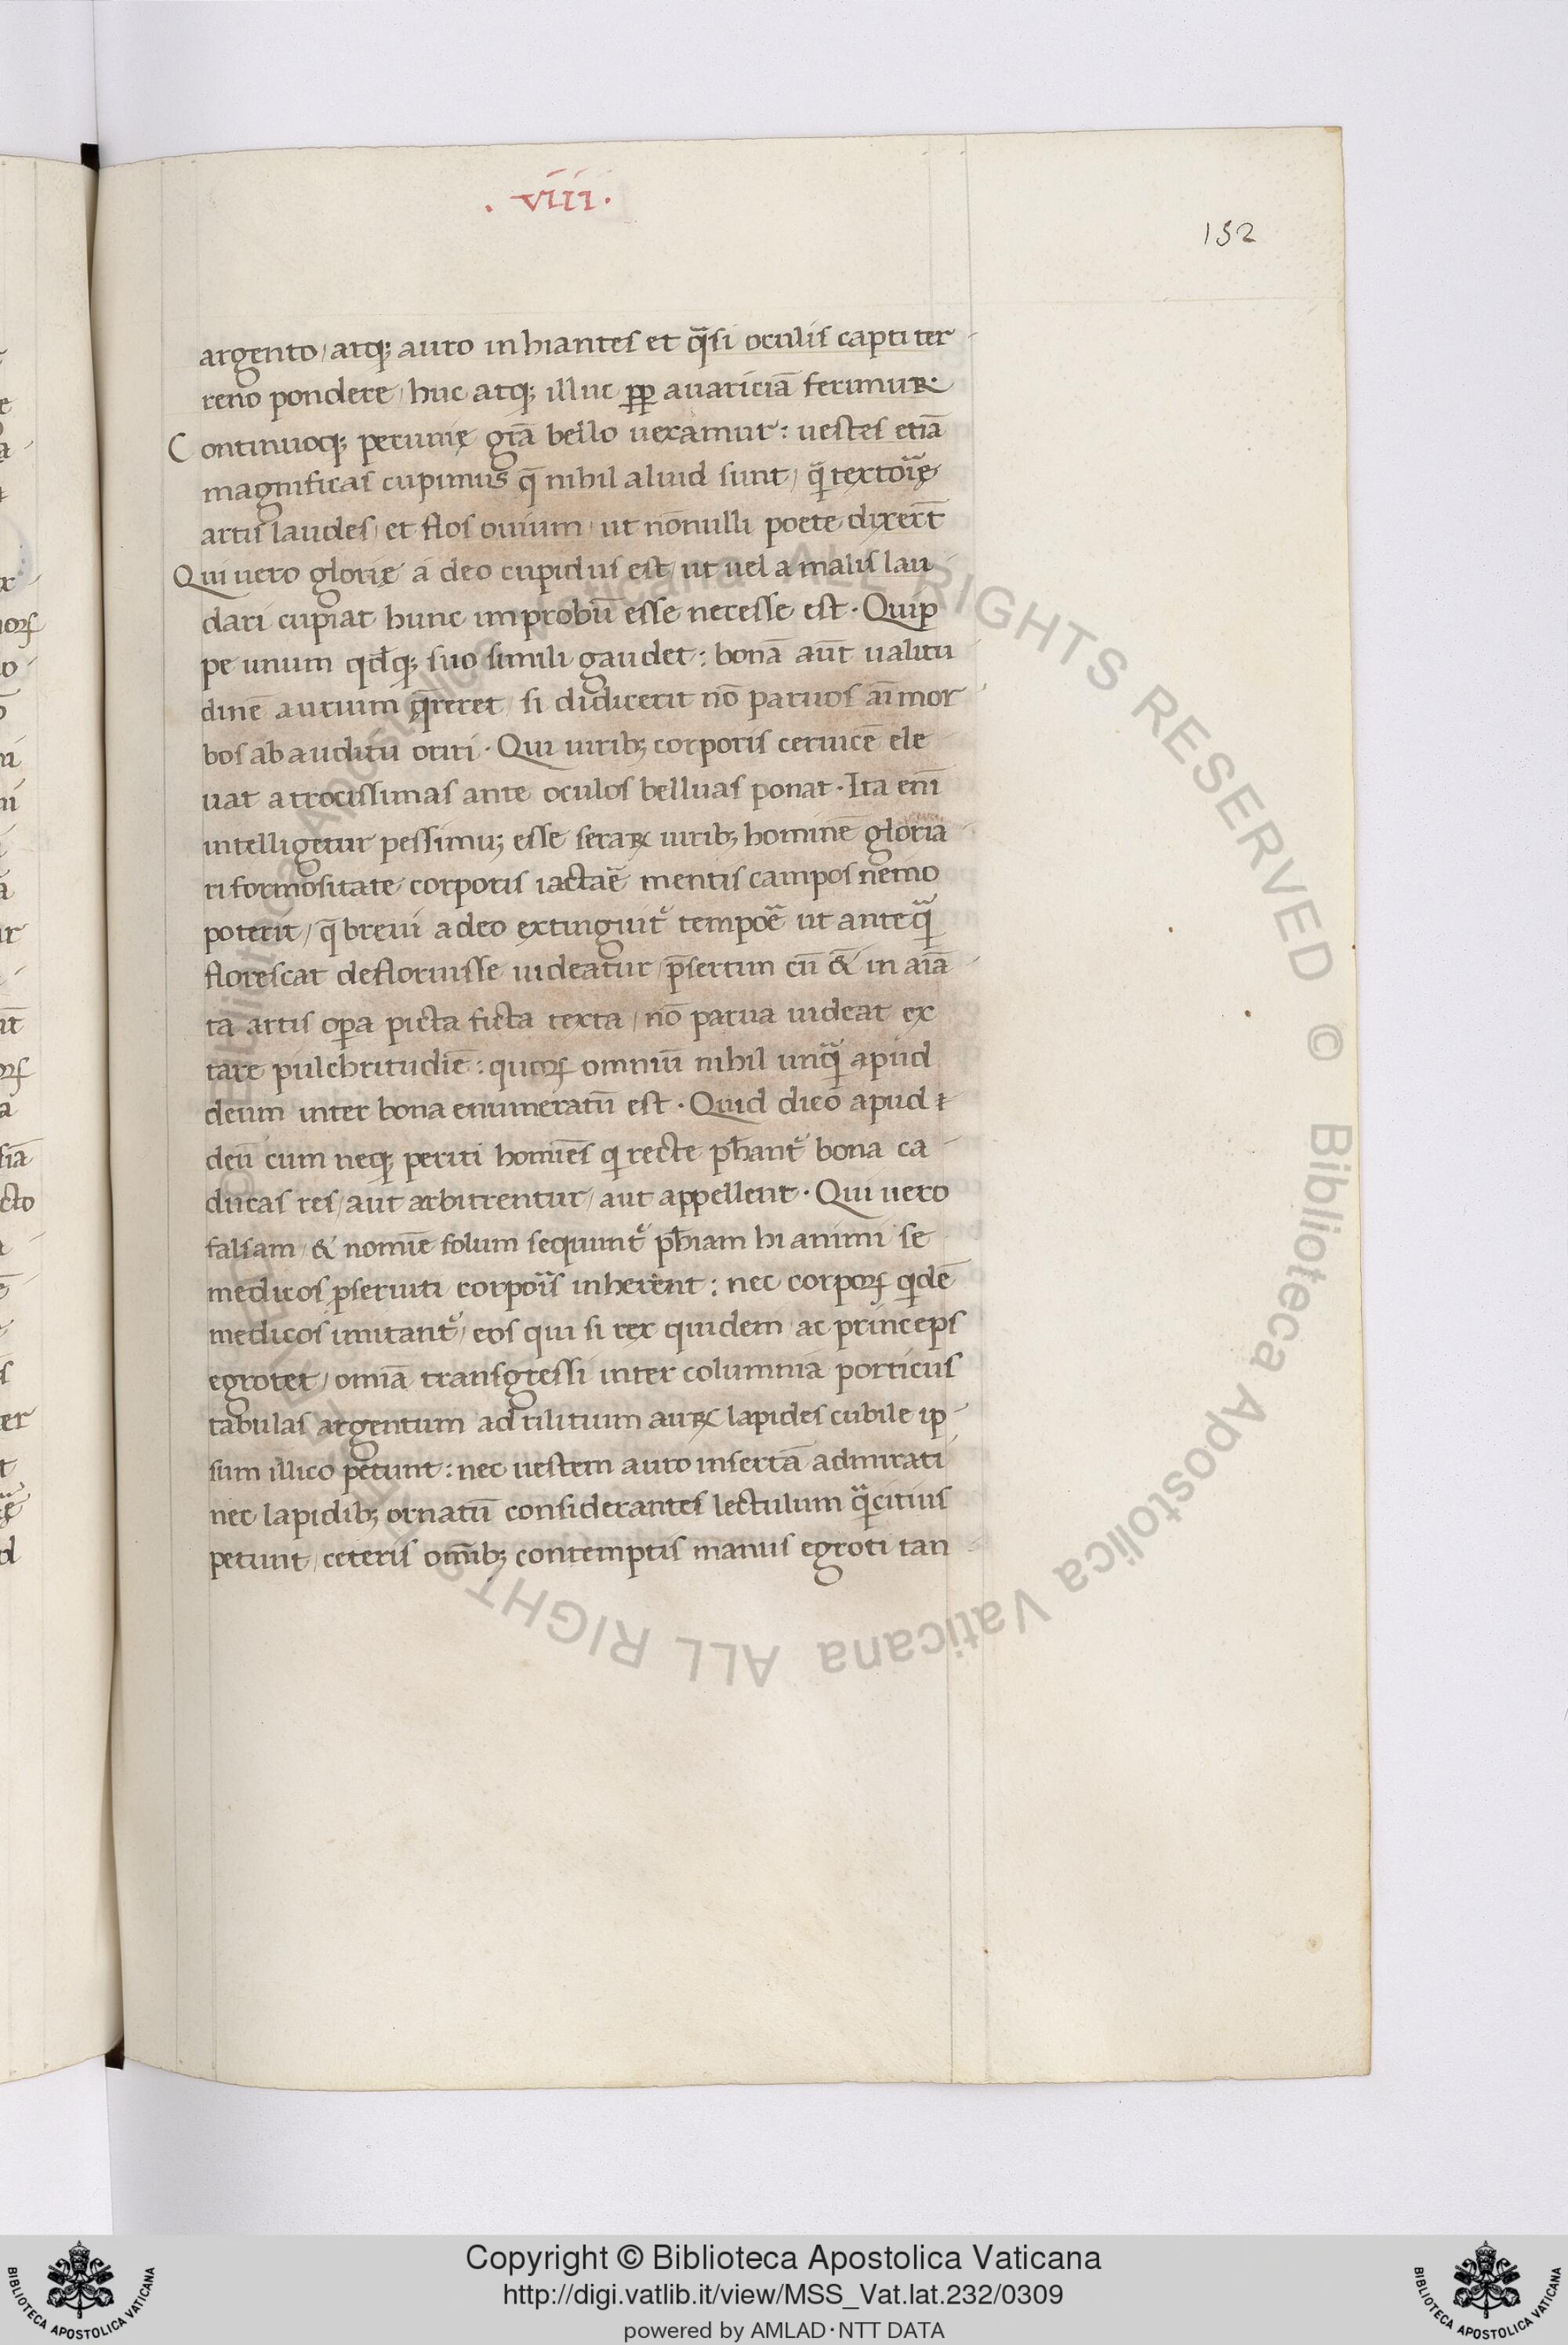 . viii .
152
argento / atq; auro inhiantes et q̄si oculis capti ter
reno pondere / huc atq; illuc ꝓp auariciā ferimur.
Continuoq; pecunię grā bello uexamur: uestes etiā
magnificas cupimus q̄ nihil aliud sunt / q̄ textorię
artis laudes / et flos ouium / ut nōnulli poete dixert̄
Qui uero glorię a deo cupidus est / ut uel a malis lau
dari cupiat hunc improbū esse necesse est · Quip
pe unum qdq; suo simili gaudet: bonā aūt ualitu
dinē aurium q̄reret / si didicerit nō paruos aī mor
bos ab auditu oriri · Qui uirib; corporis ceruicē ele
uat atrocissimas ante oculos belluas ponat · Ita enī
intelligetur pessimu; esse feraꝝ uirib; hominē gloria
ri formositate corporis iactaē mentis campos nemo
poterit / q̄ breui adeo extinguit᷑ tempoē ut anteq̄
florescat defloruisse uideatur / p̄sertim cū & in aīa
ta artis oꝑa picta ficta texta / nō parua uideat ex
tare pulchritudiē: quoꝝ omniū nihil unq̄ apud
deum inter bona enumeratū est · Quid dico apud
deū cum neq; periti homiēs qi recte ph̄ant᷑ bona ca
ducas res / aut arbitrentur / aut appellent · Qui uero
falsam / & nomīe solum sequunt᷑ ph̄iam hi animi se
medicos ꝓseruiti corpoīs inherent: nec corpoꝝ qidē
medicos imitant᷑ / eos qui si rex quidem ac princeps
egrotet / omīa transgressi inter columnia porticus
tabulas argentum adtilitium auꝝ lapides cubile ip
sum illico petunt: nec uestem auro insertā admirati
nec lapidib; ornatū considerantes lectulum q̄citius
petunt / ceteris om̄ib; contemptis manus egroti tan
Copyright © Biblioteca Apostolica Vaticana
http://digi.vatlib.it/view/MSS_Vat.lat.232/0309
powered by AMLAD·NTT DATA